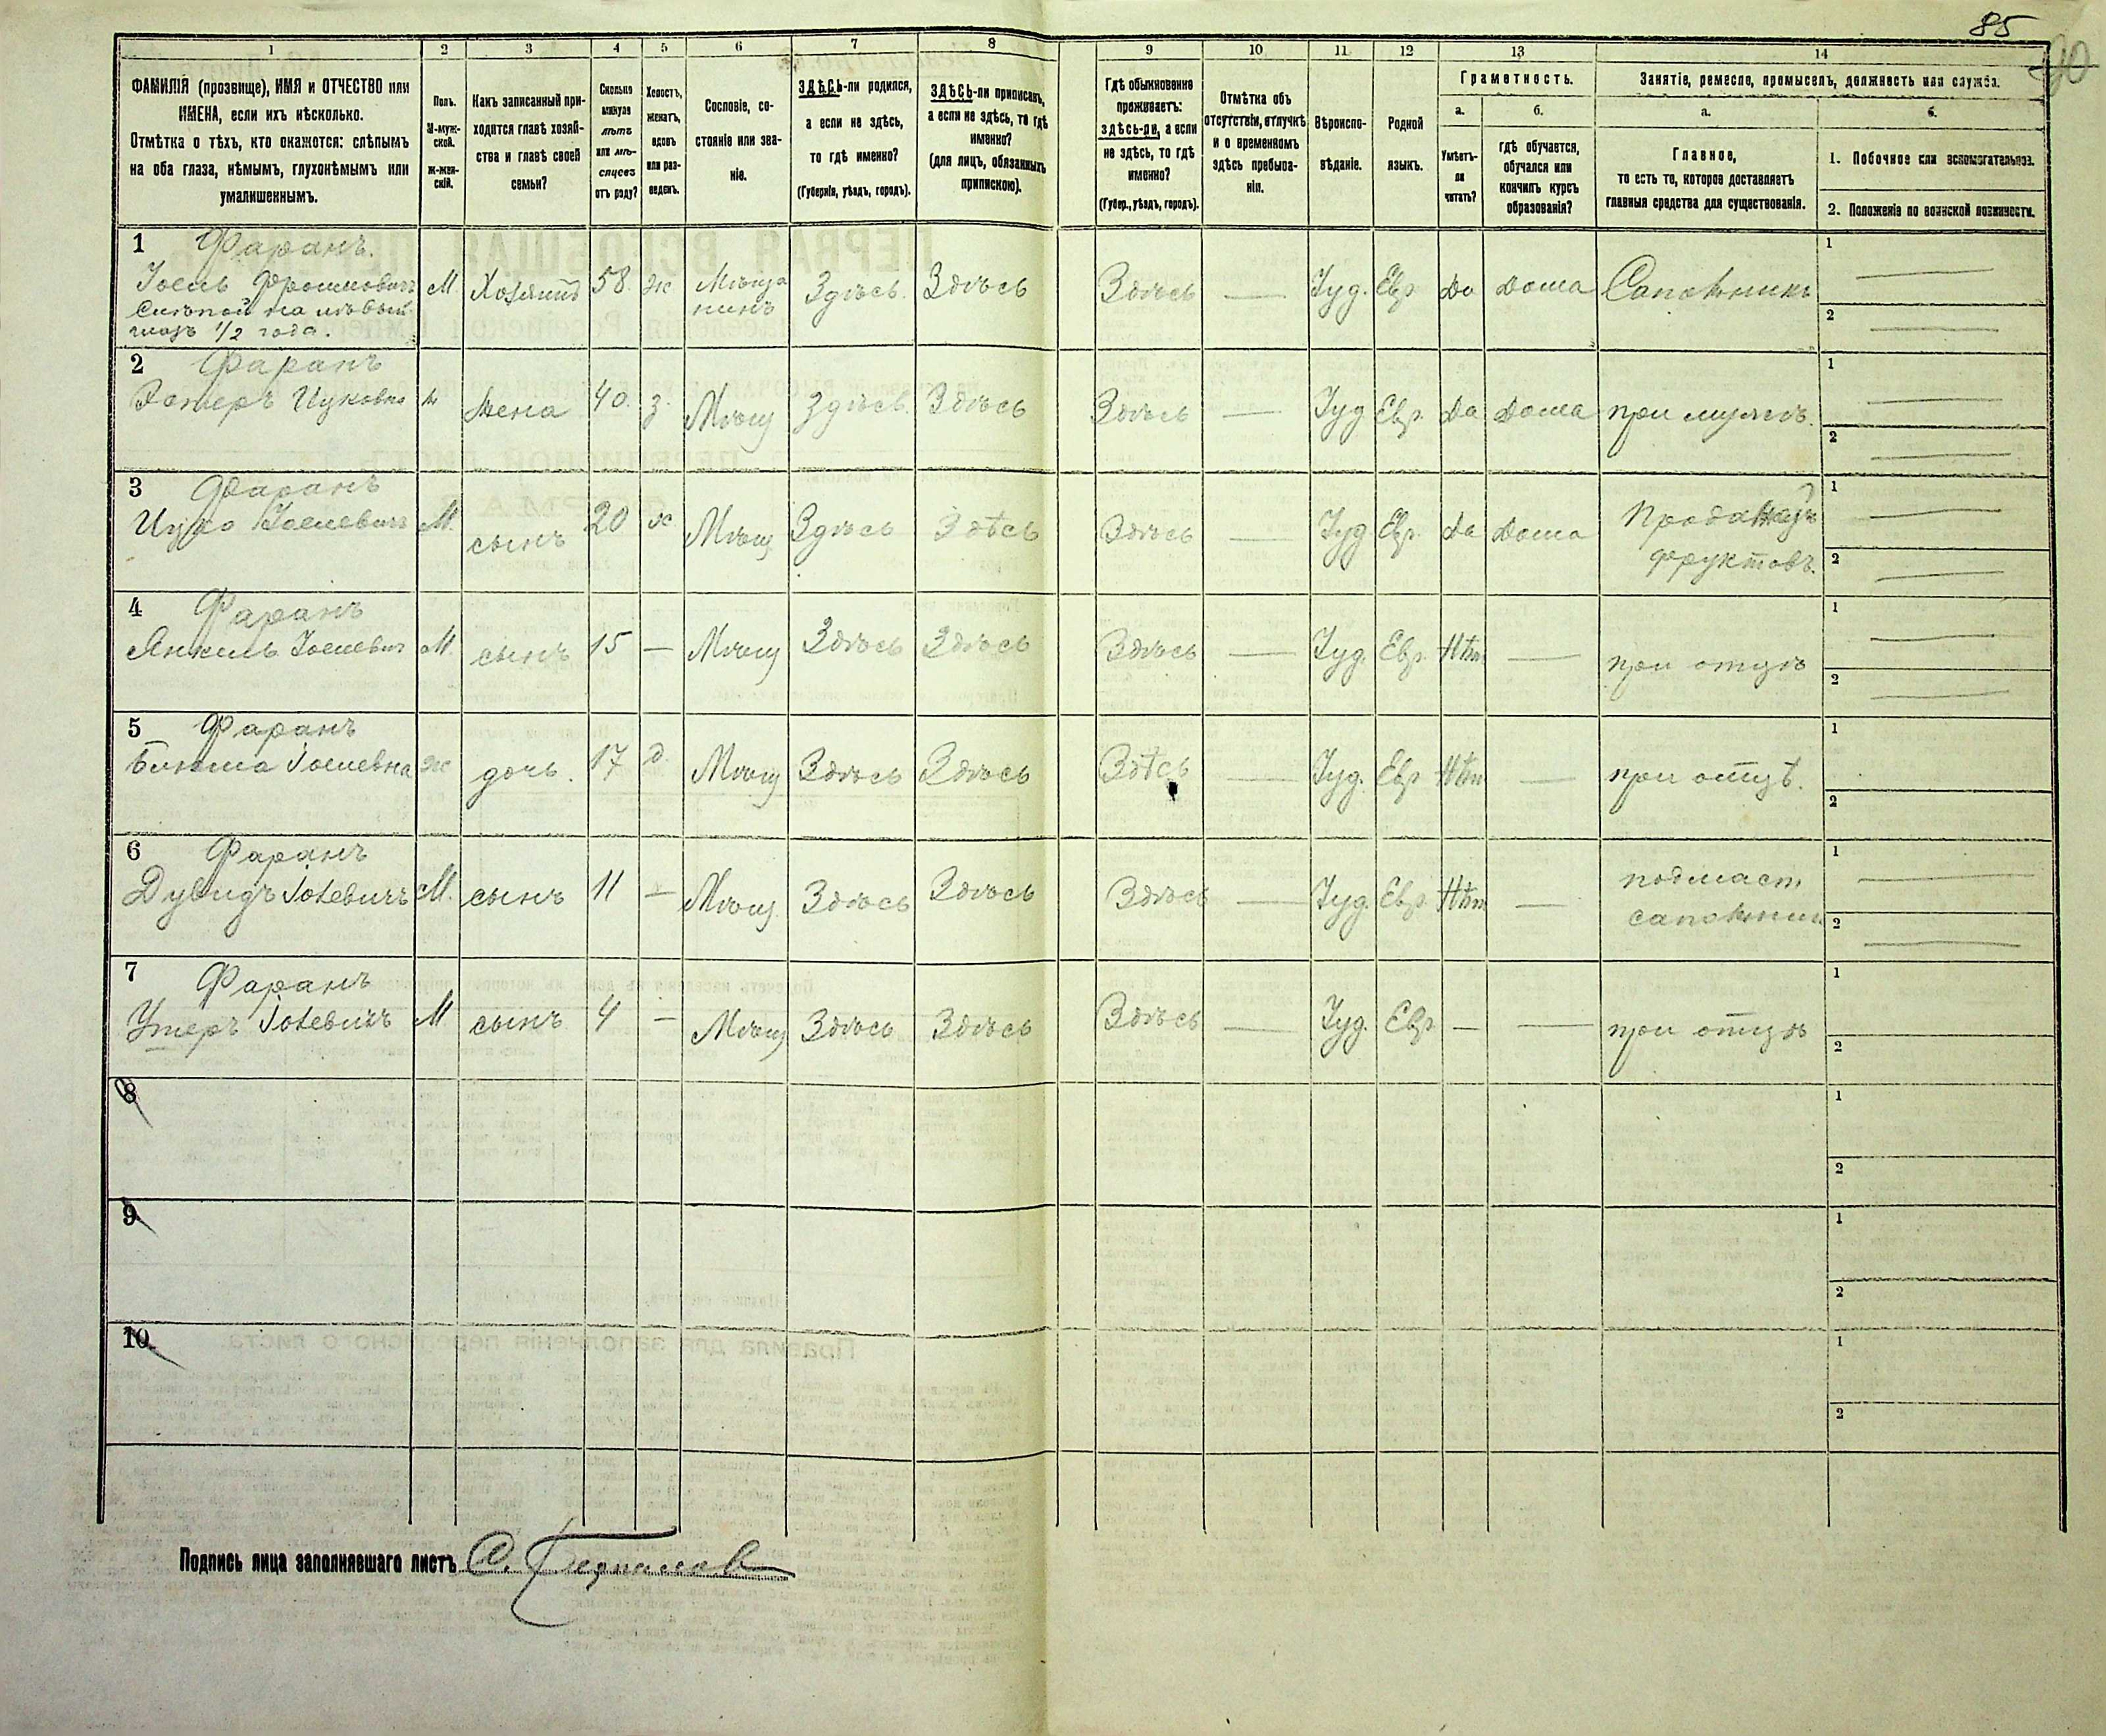 85
1 2 3 4 5 6 7 8 9 10 11 12 13 14
ФАМИЛІЯ (прозвище), ИМЯ и ОТЧЕСТВО или
ИМЕНА, если ихъ нѣсколько.
Отмѣтка о тѣхъ, кто окажется: слѣпымъ
на оба глаза, нѣмымъ, глухонѣмымъ или
умалишеннымъ.
Полъ.
М-муж-
ской.
Ж-жен-
скій.
Какъ записанный при-
ходится главѣ хозяй-
ства и главѣ своей
семьи?
Сколько
минуло
лѣтъ
или мѣ-
сяцевъ
отъ роду?
Холостъ,
женатъ,
вдовъ
или раз-
веденъ.
Сословіе, со-
стояніе или зва-
ніе.
ЗДѢСЬ-ли родился,
а если не здѣсь,
то гдѣ именно?
(Губернія, уѣздъ, городъ).
ЗДѢСЬ-ли приписанъ,
а если не здѣсь, то гдѣ
именно?
(для лицъ, обязанныхъ
припискою).
Гдѣ обыкновенно
проживаетъ:
здѣсь-ли, а если
не здѣсь, то гдѣ
именно?
(Губер., уѣздъ, городъ).
Отмѣтка объ
отсутствіи, отлучкѣ
и о временномъ
здѣсь пребыва-
ніи.
Вѣроиспо-
вѣданіе.
Родной
языкъ.
Грамотность.
а. б.
Умѣетъ-
ли
читать?
гдѣ обучается,
обучался или
кончилъ курсъ
образованія?
Занятіе, ремесло, промыселъ, должность или служба.
а. б.
Главное,
то есть то, которое доставляетъ
главныя средства для существованія.
1. Побочное или вспомогательное.
2. Положеніе по воинской повинности.
1 Фаранъ.
Іосель Фроимовичъ
Слѣпой на лѣвый
глазъ 1/2 года.
М Хозяинъ 58 ж Мѣща
нинъ
Здѣсь. Здѣсь Здѣсь — Іуд. Евр Да Дома Сапожникъ
1 —
2 —
2 Фаранъ
Эстеръ Ицковна
жена 40. з. Мѣщ Здѣсь. Здѣсь Здѣсь — Іуд Евр. Да Дома при мужѣ.
1 —
2 —
3 Фаранъ
Ицко Іоселевичъ М. сынъ 20 х Мѣщ Здѣсь Здѣсь Здѣсь — Іуд Евр. Да Дома
фруктовъ.
1 —
2 —
4 Фаранъ
Янкель Іоселевич М. сынъ 15 — Мѣщ Здѣсь Здѣсь Здѣсь — Іуд. Евр. Нѣт — при отцѣ
1 —
2 —
5 Фаранъ
Іоселевна ж дочь. 17 д Мѣщ Здѣсь Здѣсь Здѣсь — Іуд. Евр Нѣт — при отцѣ.
1
2
6 Фаранъ
Дувидъ М. сынъ 11 — Мѣщ. Здѣсь Здѣсь Здѣсь — Іуд. Евр. Нѣт — подмаст
сапожник
1 —
2 —
7 Фаранъ
М сынъ 4 — Мѣщ Здѣсь Здѣсь Здѣсь — Іуд. Евр — — при отцѣ
1
2
8
1
2
9
1
2
10
1
2
Подпись лица заполнявшаго листъ